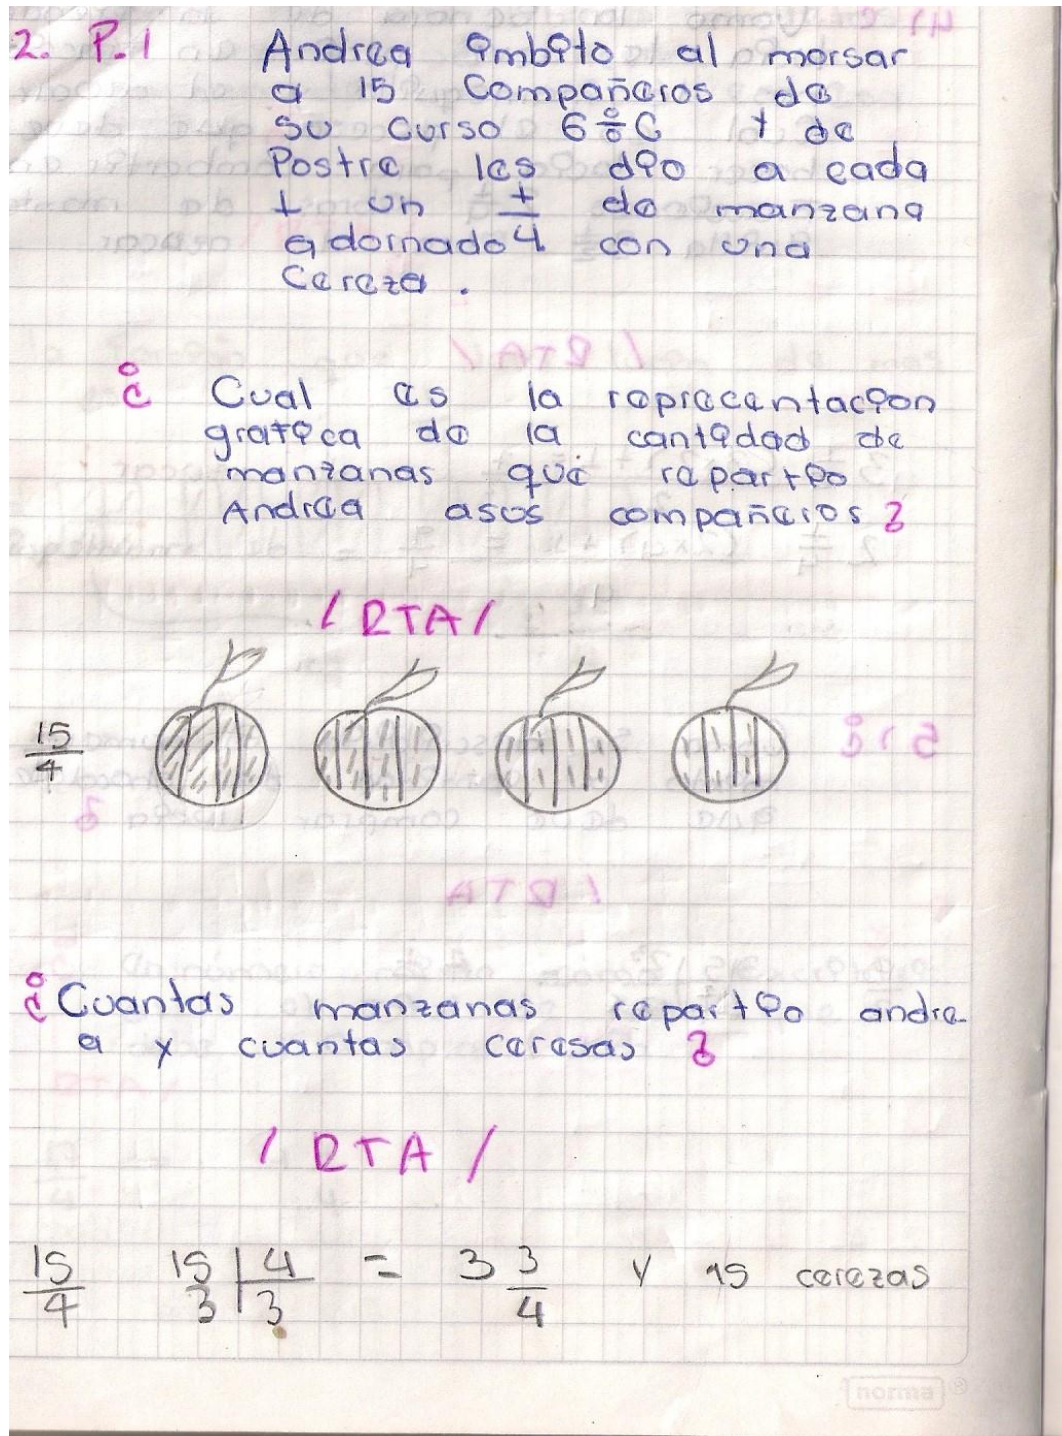 2. P.1 Andrea imbito al morsar
a 15 Compañeros de
su curso 6 de
Postre les dio a cada
1 un 1/4 de manzana
adornado con una
Cereza.
¿Cual es la reprecentacion
grafica de la cantidad de
manzanas que repartio
Andrea asus compañeros?
/RTA/
15/4
¿Cuantas manzanas repartio andre-
a y cuantas ceresas?
/RTA/
15/4 15 | 4 = 3 3/4 y 15 cerezas
3 3
norma